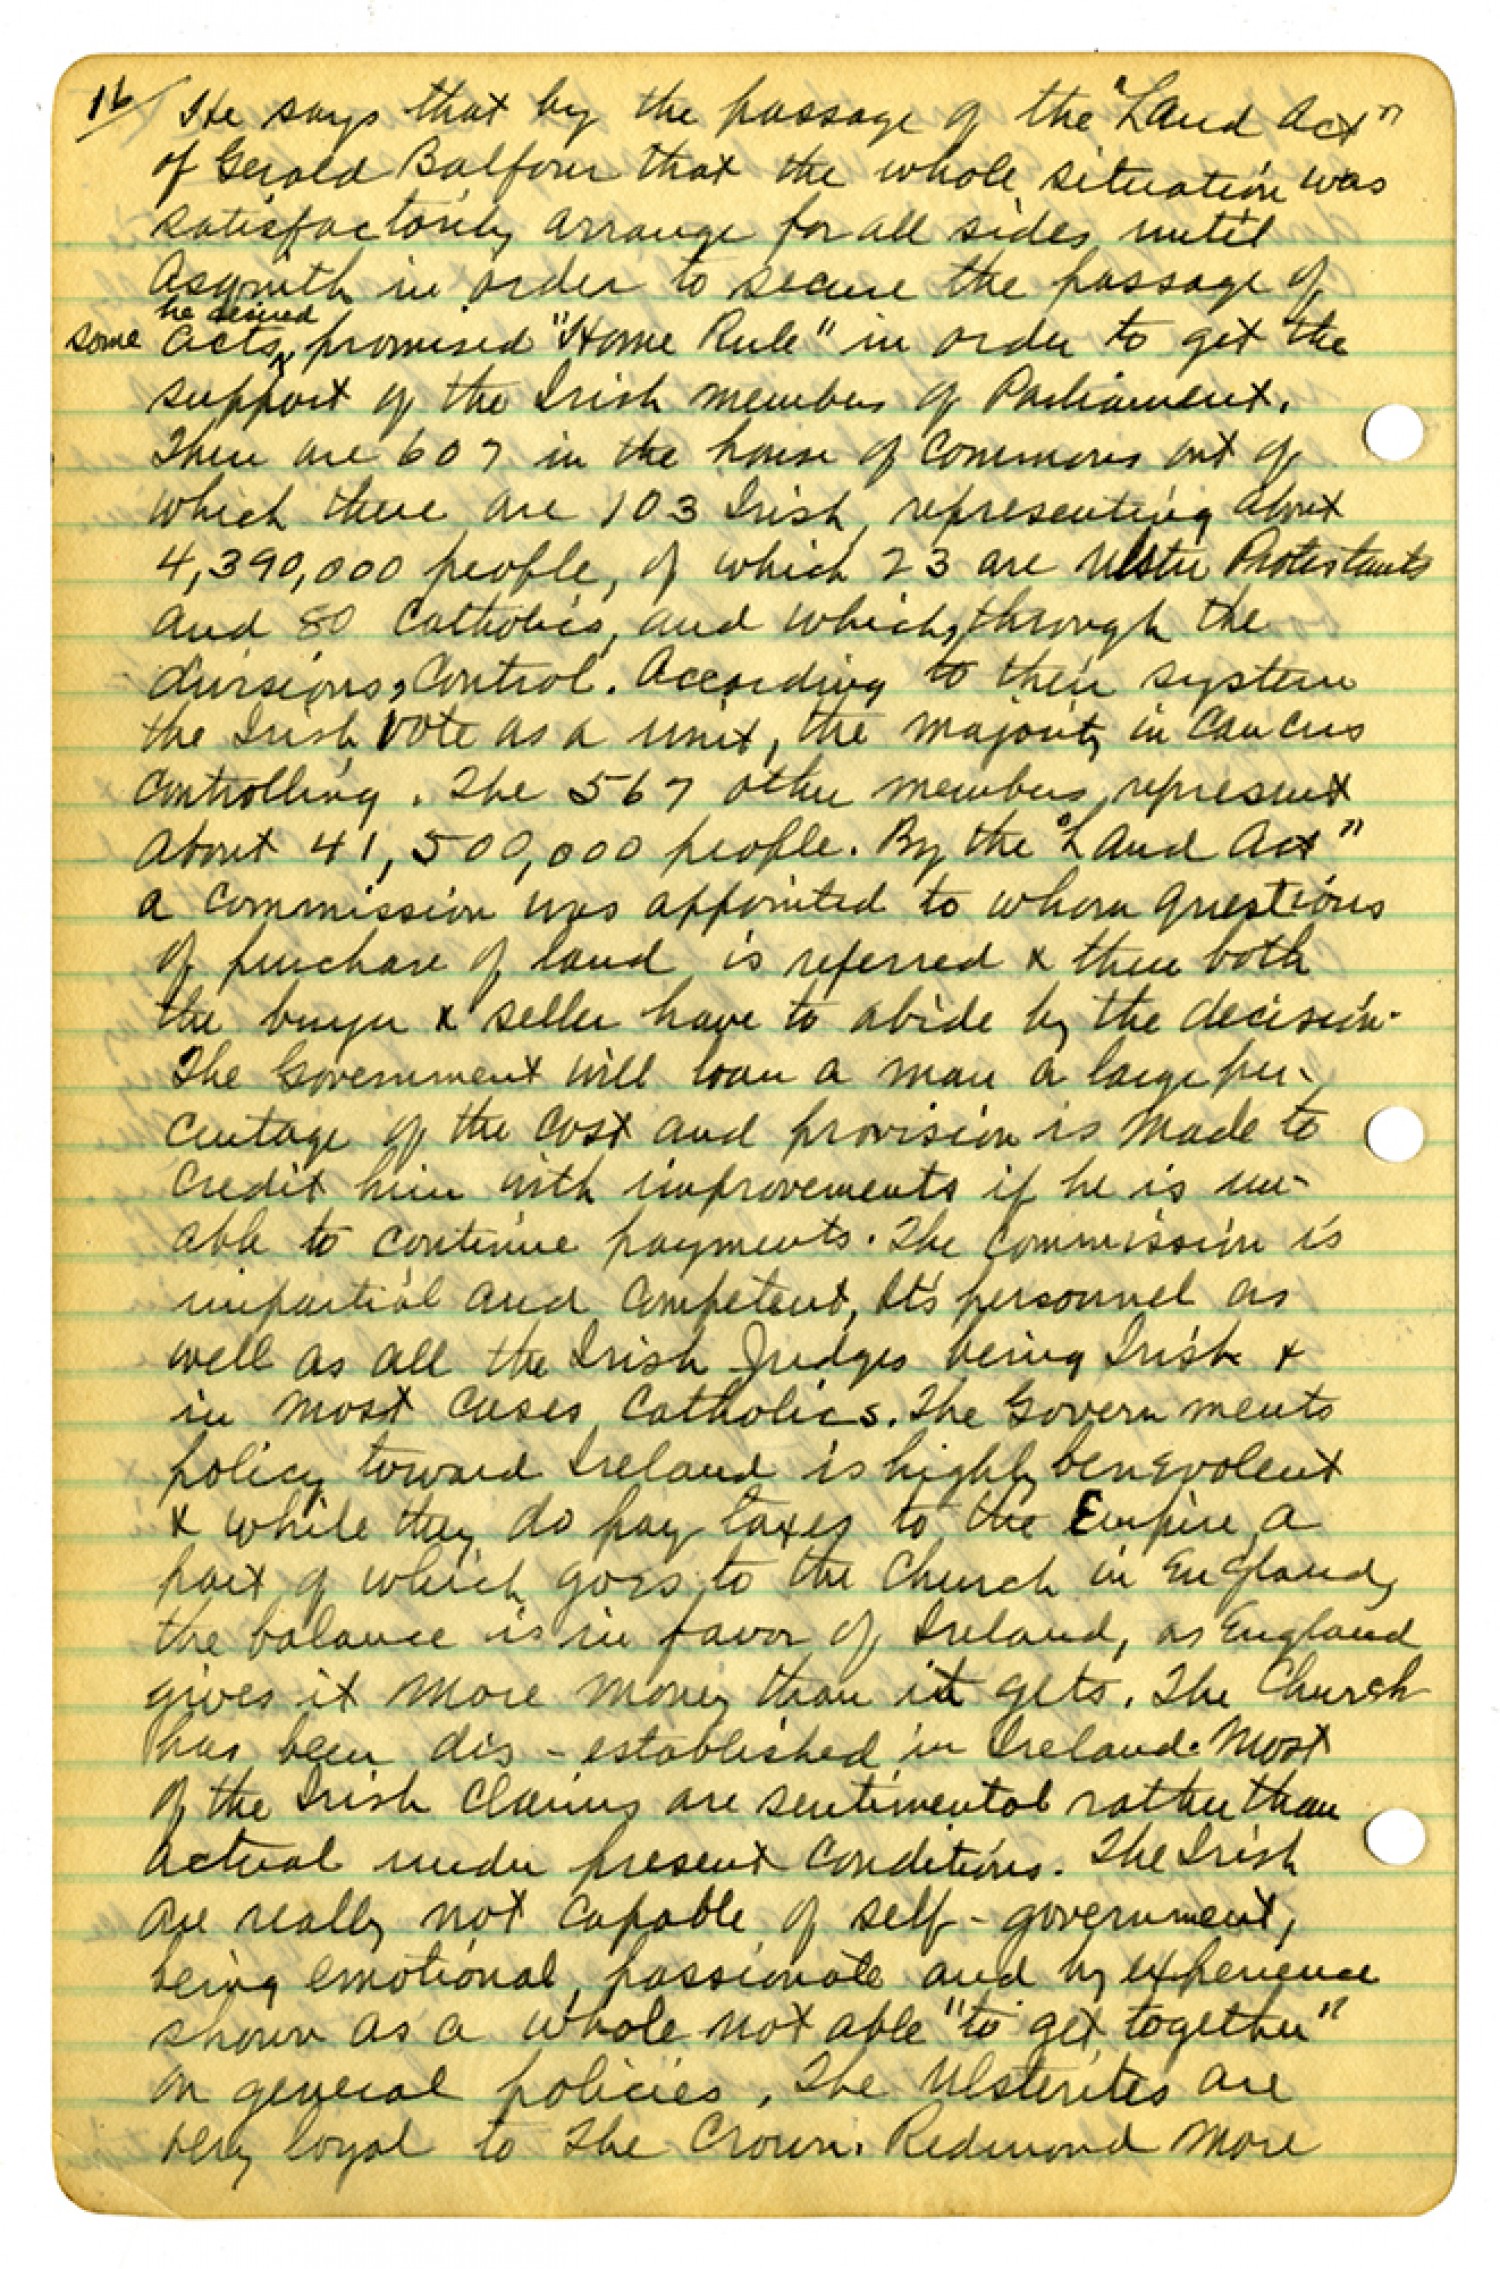 16/ He says that by the passage of the "Land Act"
of Gerald Balfour that the whole situation was
satisfactorily arrange for all sides until
Asquith in order to secure the passage of
he desired
some acts, promised "Home Rule" in order to get the
support of the Irish members of Parliament.
There are 607 in the house of Commons out of
which there are 103 Irish, representing about
4,390,000 people, of which 23 are Ulster Protestants
and 80 Catholics, and which, through the
divisions, control. According to their system
the Irish vote as a unit, the majority in caucus
controlling. The 567 other members represent
about 41,500,000 people. By the "Land Act"
a commission was appointed to whom questions
of purchase of land is referred & then both
the buyer & seller have to abide by the decision.
The Government will loan a man a large per-
centage of the cost and provision is made to
credit him with improvements if he is un-
able to continue payments. The commission is
impartial and competent, it's personnel as
well as all the Irish Judges being Irish &
in most cases Catholics. The Governments
policy toward Ireland is highly benevolent
& while they do pay taxes to the Empire, a
part of which goes to the Church in England,
the balance is in favor of Ireland, as England
gives it more money than it gets. The Church
has been dis-established in Ireland. Most
of the Irish claims are sentimental rather than
actual under present conditions. The Irish
are really not capable of self-government,
being emotional, passionate and by experience
shown as a whole not able "to get together"
on general policies. The Ulsterites are
very loyal to The Crown. Redmond more